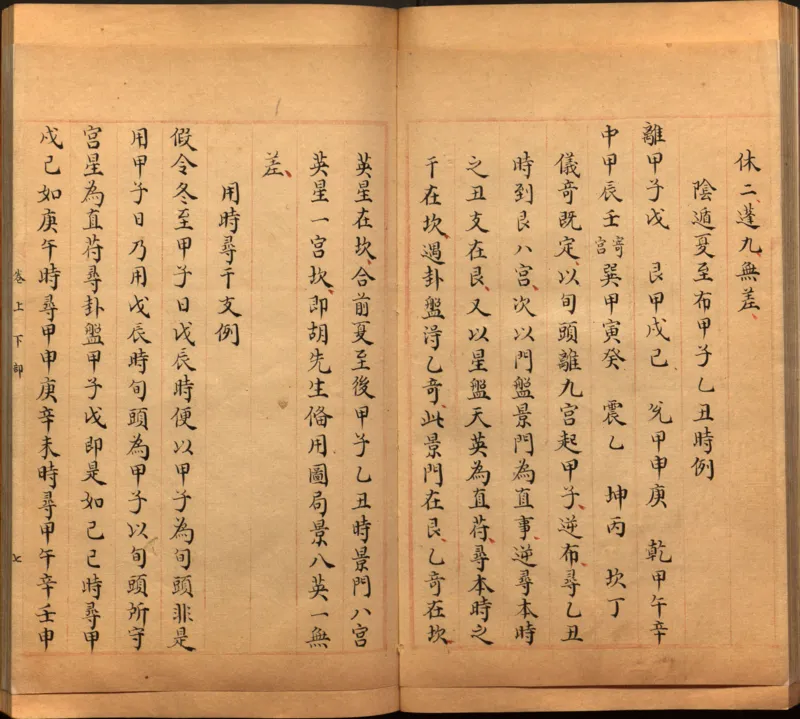 休二蓬九無差
陰遁夏至布甲子乙丑時例
離甲子戊　艮甲戌己　兊甲申庚　乾甲午辛
中甲辰壬寄宮　巽甲寅癸　震乙　坤丙　坎丁
儀竒既定以旬頭離九宮起甲子逆布尋乙丑
時到艮八宮次以門盤景門為直事逆尋本時
之丑支在艮又以星盤天英為直苻尋本時之
干在坎遇卦盤淂乙竒此景門在艮乙竒在坎
英星在坎合前夏至後甲子乙丑時景門八宮
英星一宮坎即胡先生俻用圖局景八英一無
差
用時尋干支例
假令冬至甲子日戊辰時便以甲子為旬頭非是
用甲子日乃用戊辰時旬頭為甲子以旬頭所守
宮星為直苻尋卦盤甲子戊即是如己巳時尋甲
戌己如庚午時尋甲申庚辛未時尋甲午辛壬申
卷上下部
七